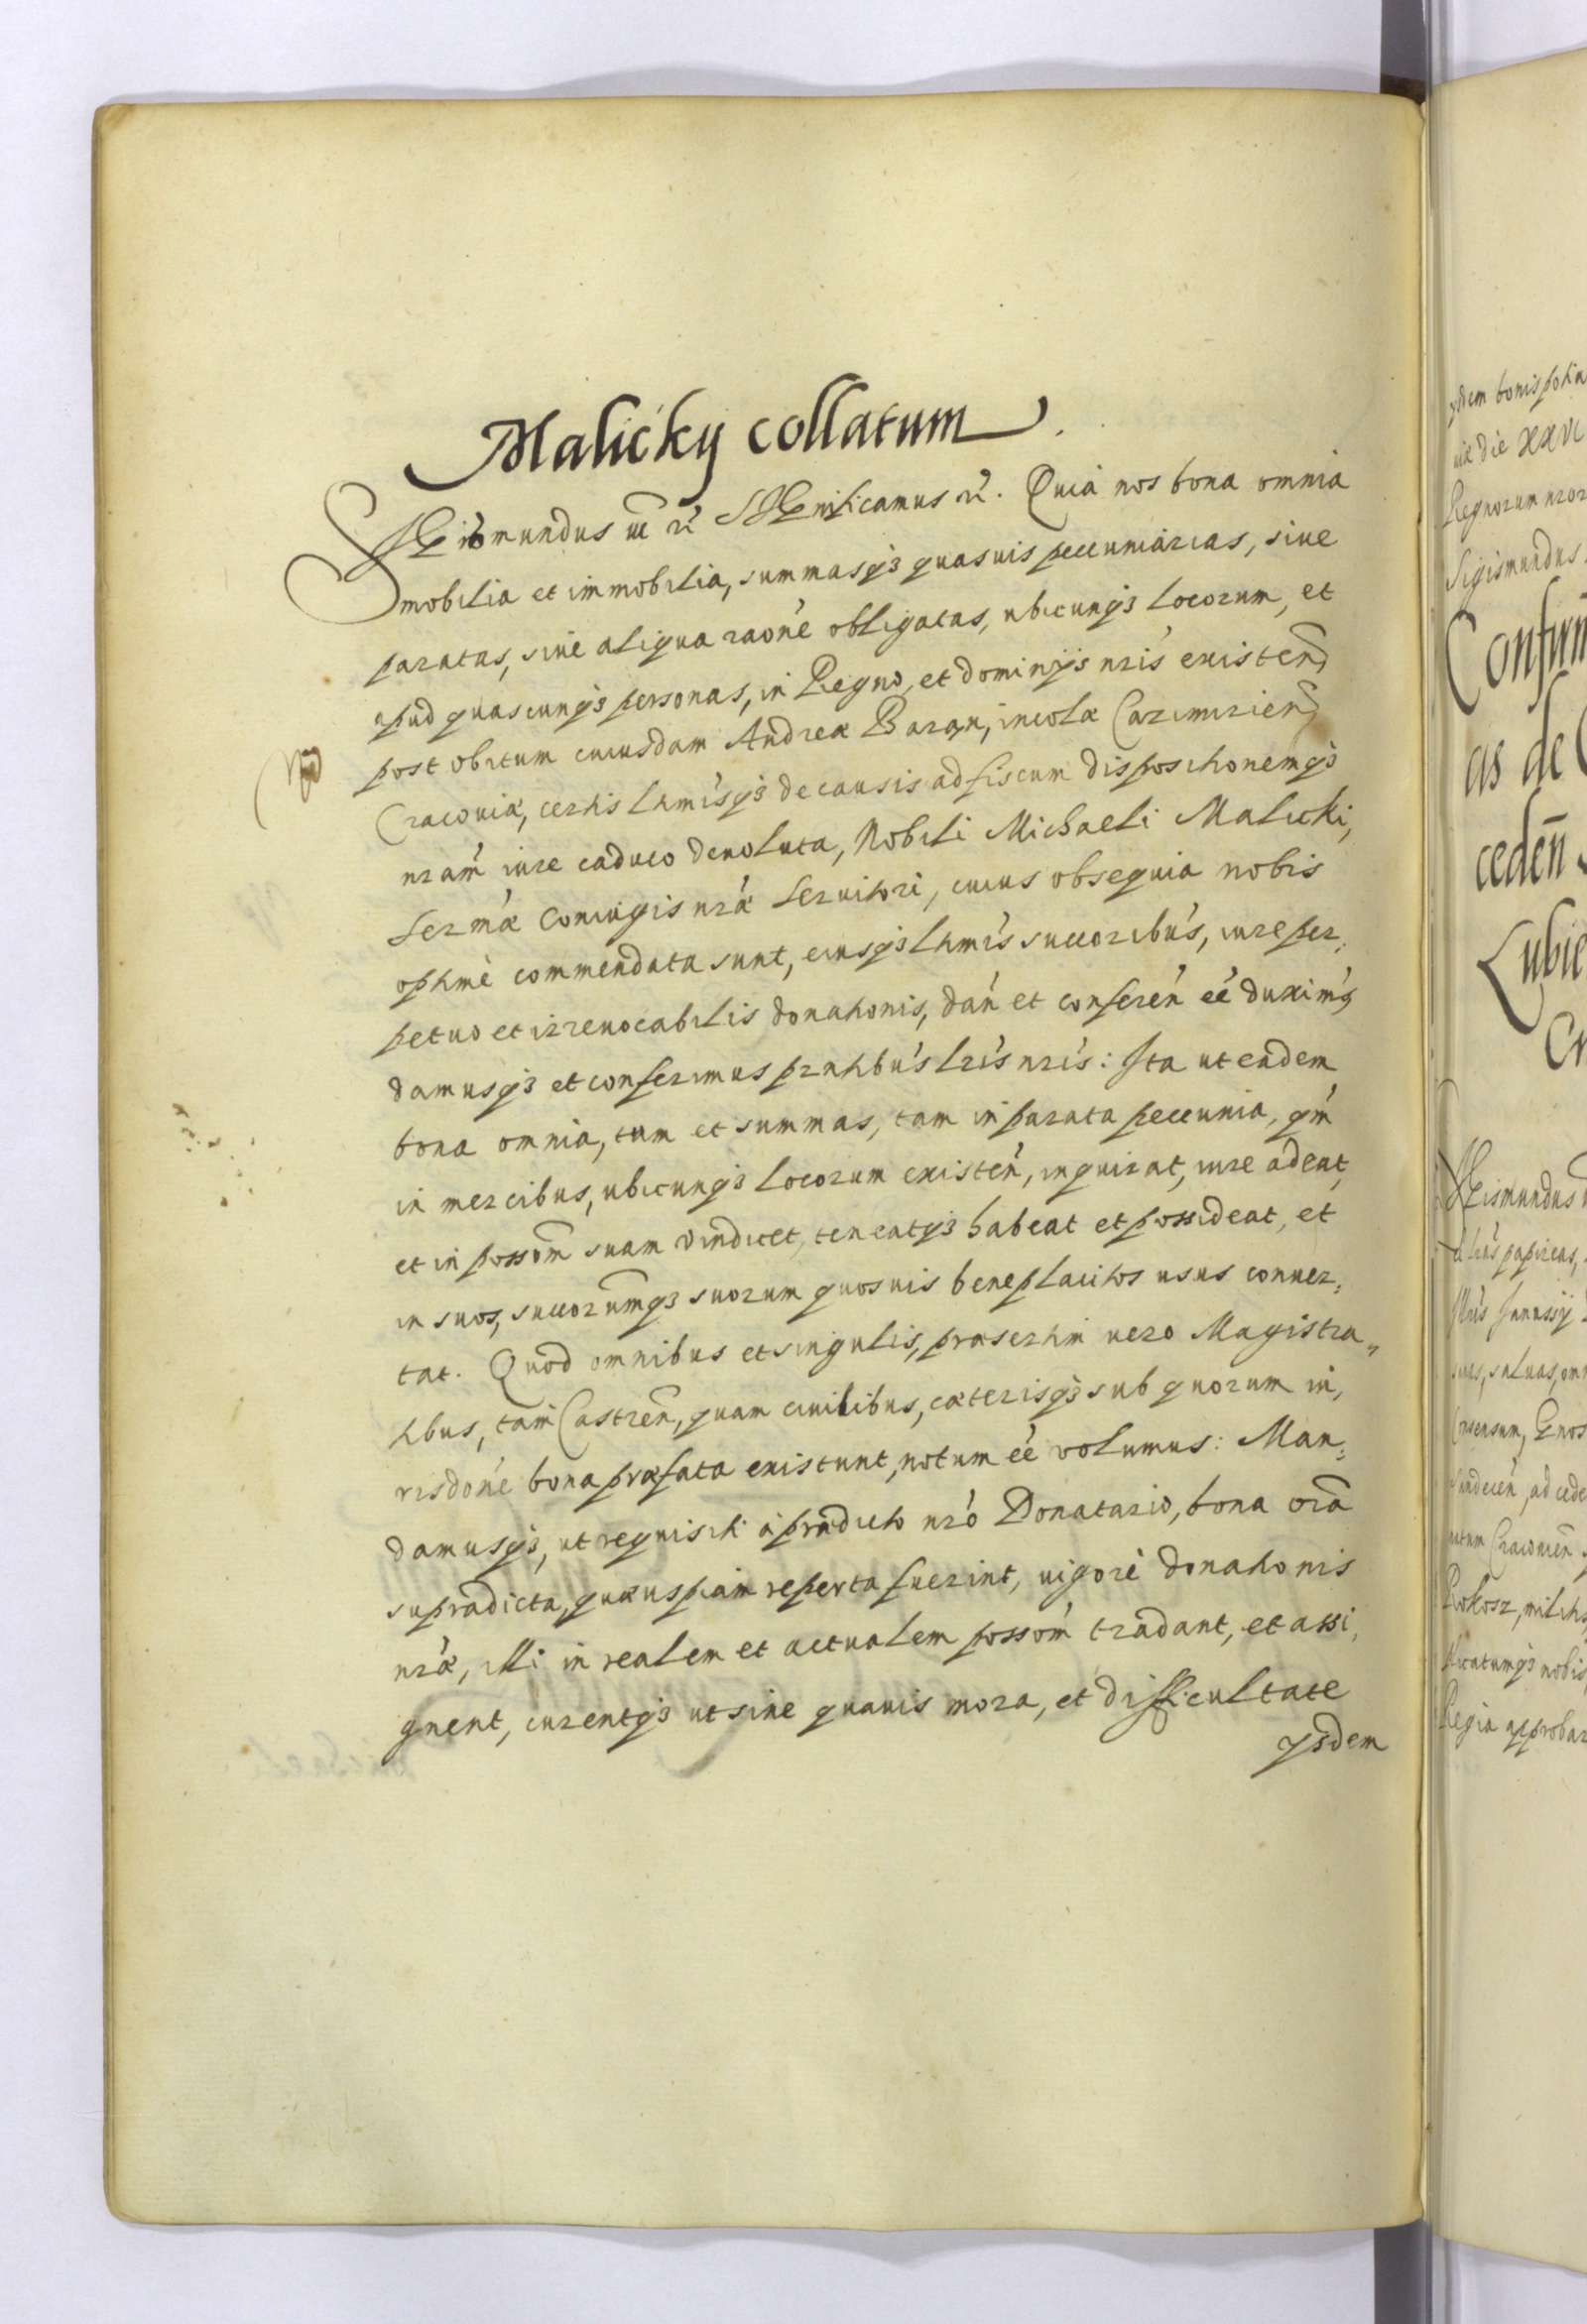 Malicky collatum.
Sigismundus etc. Significamus etc. Quia nos bona omnia
mobilia et immobilia, summasqз quasuis pecuniarias, siue
paratas, siue aliqua raone obligatas, ubicunqз locorum, et
apud quascunqз personas, in Regno, et dominijs nris existen,
post obitum cuiusdam Andreæ Baran, incolæ Cazimirien,
Cracouiæ, certis ltmisqз de causis ad fiscum dispositionemqз
nram iure caduco deuoluta, Nobili Michaeli Malicki,
Sermæ Coniugis nræ Seruitori, cuius obsequia nobis
optime commendata sunt, eiusqз ltmis succoribus, iure per:
petuo et irreuocabilis donationis, dan et conferen eé duximus
damusqз et conferimus prntibus lris nris: Ita ut eadem
bona omnia, tum et summas, tam in parata pecunia, qm
in mercibus, ubicunqз locorum existen, inquirat, iure adeat,
et in possom suam vindicet, teneatqз habeat et possideat, et
in suos, succorumqз suorum quosuis beneplacitos usus conuer:
tat. Quod omnibus et singulis, præsertim uero Magistra„
tibus, tam Castren, quam ciuilibus, cæterisqз sub quorum iu,
risdone bona præfata existunt, notum eé volumus: Man:
damusqз, ut requisiti à prædicto nro Donatario, bona oia
supradicta, quæuspiam reperta fuerint, uigore donationis
nræ, illi in realem et actualem possom tradant, et assi,
gnent, curentqз ut sine quauis mora, et difficultate
ysdem
ysdem bonis
die XXVI
Regnorum
Sigismundus
Confirm
as de
ceden
Lubie
Sigismundus
papireas,
Janussy
saluas,
Consensum,
Rokosz,
nobis
Regia approbar